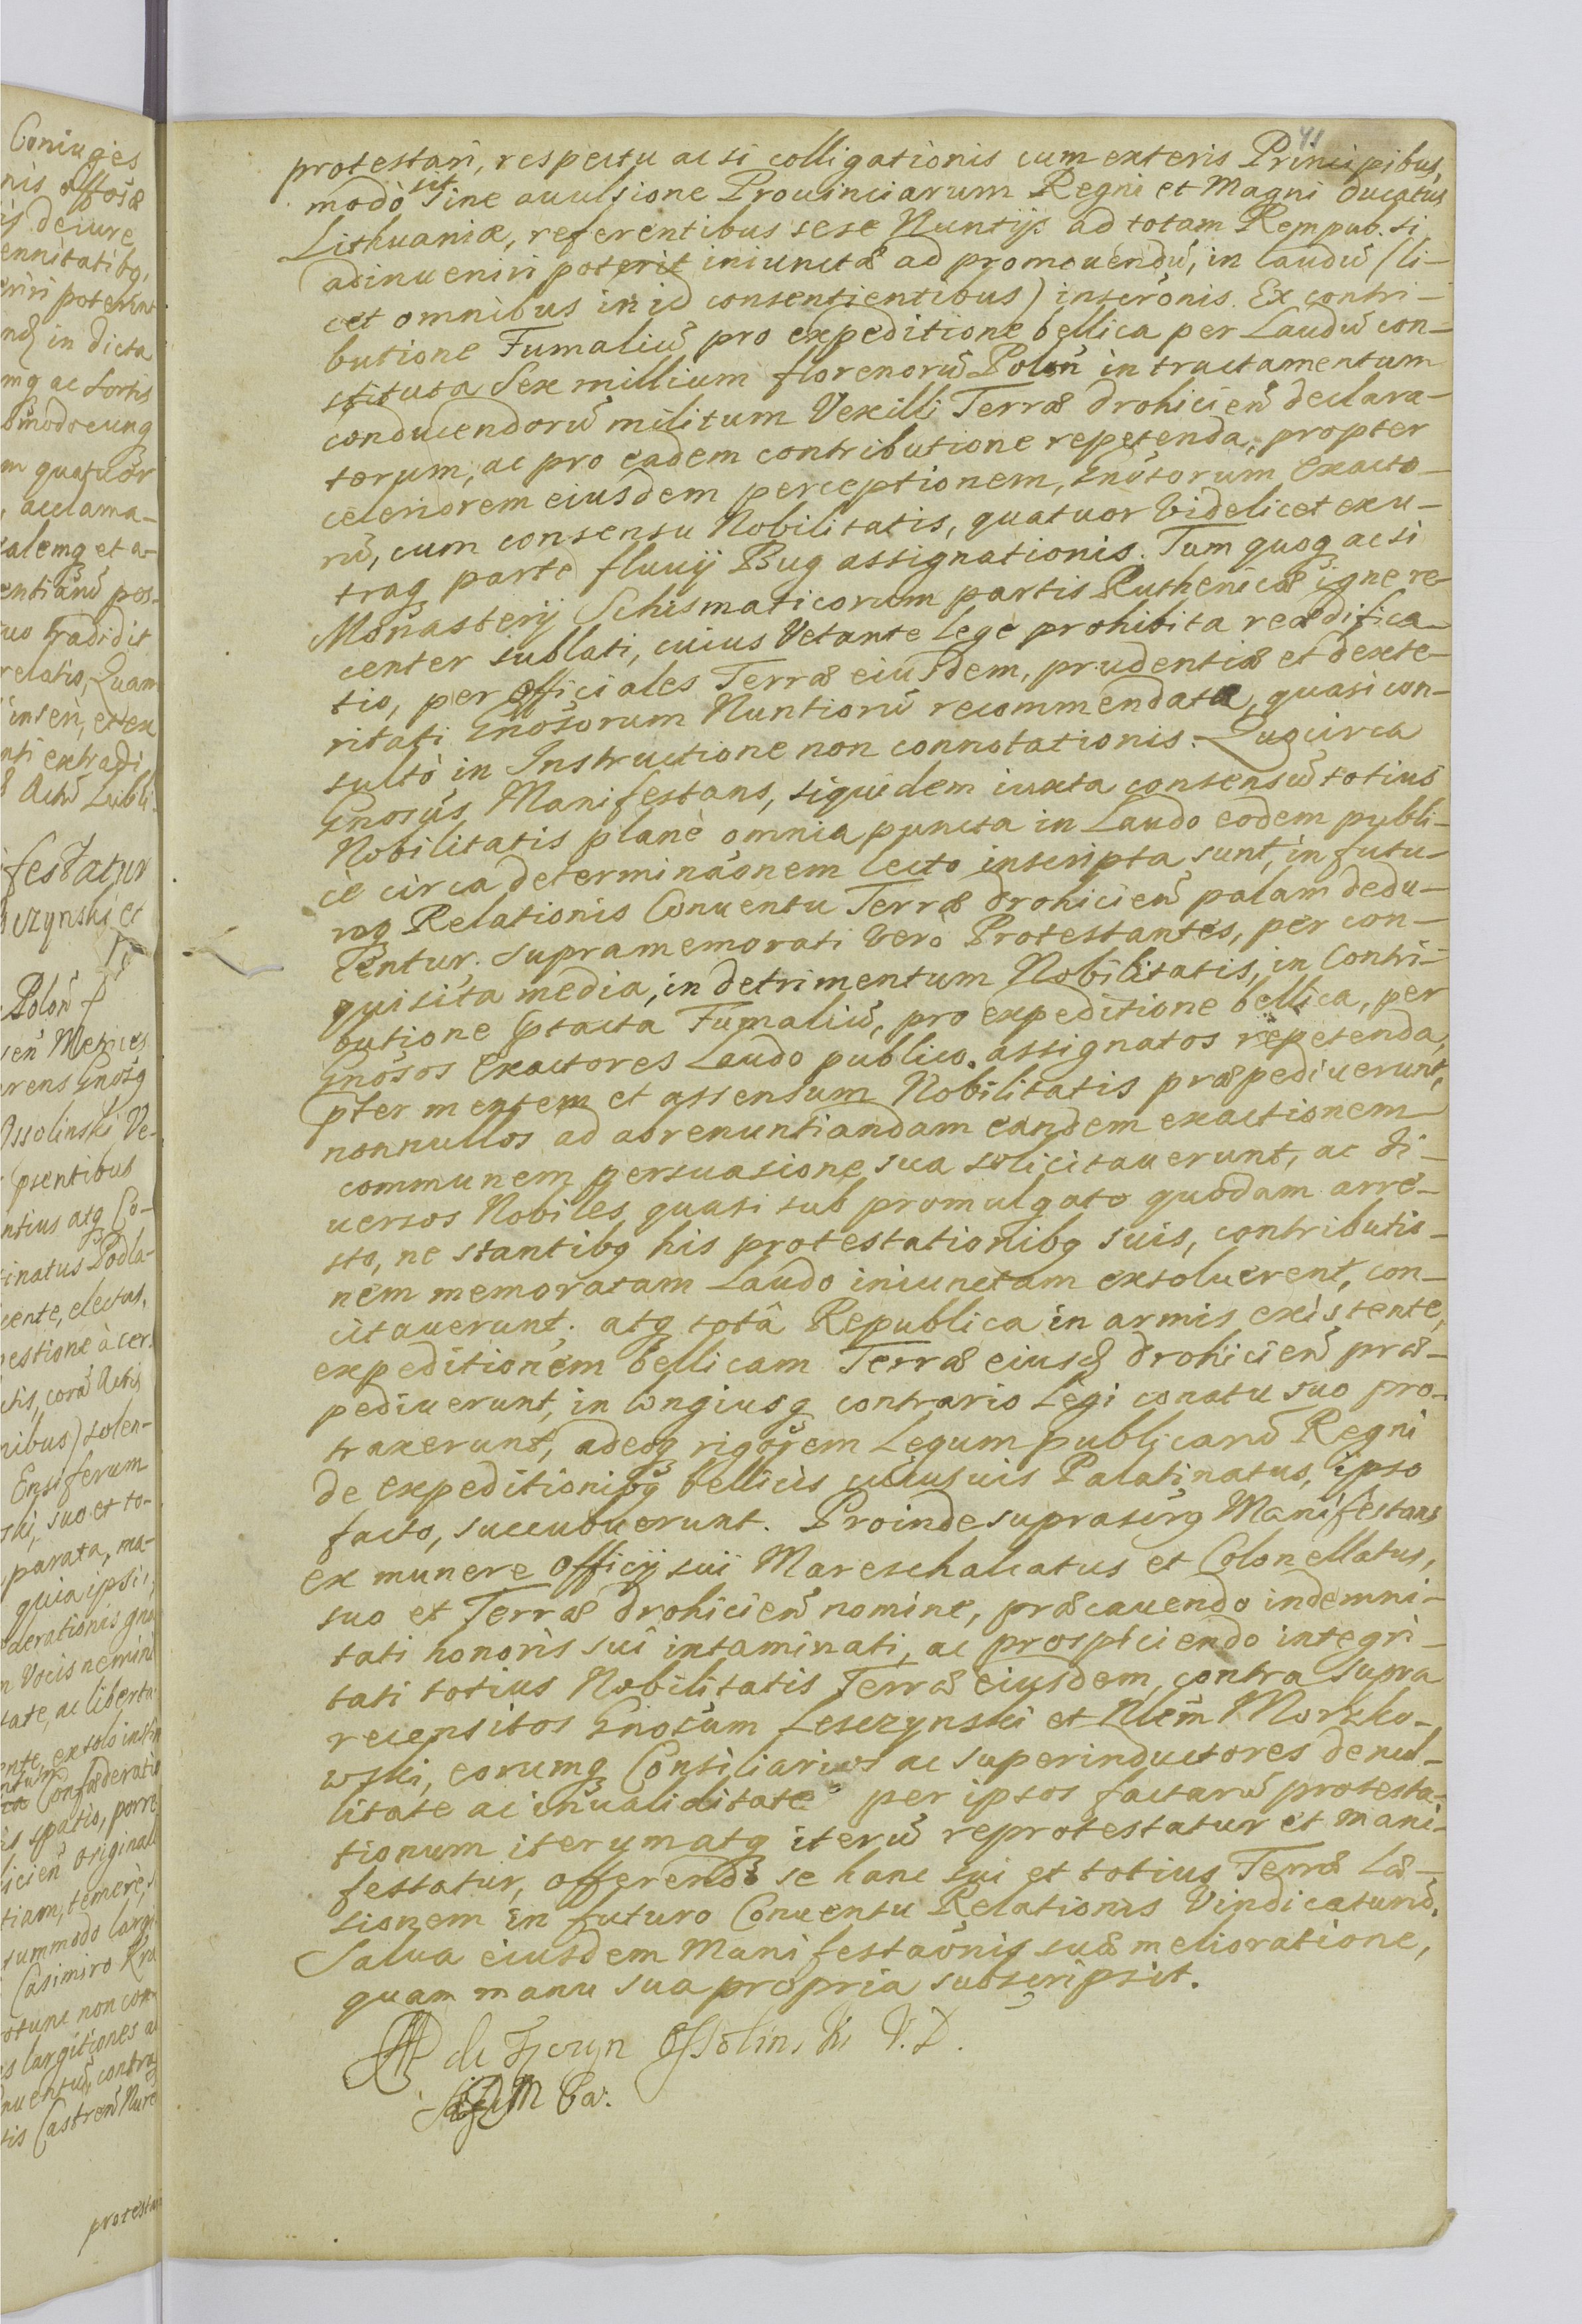 Coniuges
nis
deiure
ennitatibq,
eriri poterint
nq in dicta
mq ac fortis
modocunq
m quatuor
, acclama-
alemq et a-
entianū pos-
tuo tradidit
relatis, Quam
inseri, et ex
ati extradi
Actū Lubli
festatur
szynski et
Polon̄
sen̄
rens Gnosq
Ossolinski Ve-
pn̄tibus
ntius atq Co-
tinatus Podla-
cente, electus,
estione à cer-
ctis, corā Actis
nibus) solen-
Ensiferum
ski, suo et to-
parata, ma-
quia ipsi,
derationis
n Vocis nemini
tate, ac liberta-
ente, ex solo
Confœderatio
is spatio, porre
icien̄ originali
tiam, temerè,
tummodo largi
Casimiro
tunc non con-
s largitiones a
nuentū, contra
tis Castren̄ Nure
protestari
41
protestari, respectu ac si colligationis cum exteris Principibus,
modò sit sine auulsione Prouinciarum Regni et Magni Ducatus
Lithuaniæ, referentibus sese Nuntijs ad totam Rempub. si
adinueniri poterit iniunctæ ad promouendū, in laudū (li-
cet omnibus in id consentientibus) inserōnis. Ex contri-
butione Fumaliū pro expeditione bellica per Laudū con-
stituta Sex millium florenorū Polon̄ in tractamentum
conducendorū militum Vexilli Terræ Drohicien̄ declara-
torum, ac pro eadem contributione repetenda, propter
celeriorem eiusdem perceptionem, Gnosorum Exacto-
rū, cum consensu Nobilitatis, quatuor videlicet ex u-
traq parte fluuij Bug assignationis. Tum quoq ac si
Monasterij Schismaticorum partis Ruthenicæ igne re-
center sublati, cuius Vetante lege prohibita reædifica-
tio, per Officiales Terræ eiusdem, prudentiæ et dexte-
ritati Gnosorum Nuntiorū recommendata, quasi con-
sultò in Instructione non connotationis. Quocirca
Gnosus Manifestans, siquidem iuxta consensū totius
Nobilitatis planè omnia puncta in Laudo eodem publi-
cè circa determinaōnem lecto inscripta sunt, in futu-
roq Relationis Conuentu Terræ Drohicien̄ palam dedu-
centur. Supramemorati vero Protestantes, per con-
quisita media, in detrimentum Nobilitatis, in Contri-
butione ptacta Fumaliū, pro expeditione bellica, per
Gnosos Exactores Laudo publico assignatos repetenda,
pter mentem et assensum Nobilitatis præpediuerunt,
nonnullos ad abrenuntiandam eandem exactionem
communem persuasione sua solicitauerunt, ac di-
uersos Nobiles quasi sub promulgato quodam arre-
sto, ne stantibq his protestationibq suis, contributio-
nem memoratam Laudo iniunctam exsoluerent, con-
citauerunt; atq totâ Republica in armis existente,
expeditionem bellicam Terræ eiusd Drohicien̄ præ-
pediuerunt, in longiusq contrario Legi conatu suo pro-
traxerunt, adeoq rigorem Legum publicarū Regni
de expeditionibq bellicis cuiusuis Palatinatus, ipso
facto, succubuerunt. Proinde suprascrq Manifestans
ex munere Officij sui Mareschalcatus et Colonellatus,
suo et Terræ Drohicien̄ nomine, præcauendo indemni-
tati honoris sui intaminati, ac prospiciendo integri-
tati totius Nobilitatis Terræ eiusdem, contra supra
recensitos Gnosum Leszczynski et Nlem̄ Morzko-
wski, eorumq Consiliarios ac superinductores de nul-
litate ac inualiditate per ipsos factarū protesta-
tionum iterum atq iterū reprotestatur et mani-
festatur, offerendo se hanc sui et totius Terræ læ-
sionem in futuro Conuentu Relationis Vindicaturū.
Salua eiusdem Manifestaōnis suæ melioratione,
quam manu sua propria subscripsit.
de Tęczyn Ossolinski V.D.